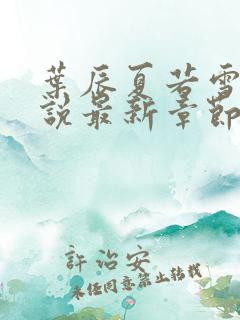 葉辰夏若雪
說最新章節
許治安
未經同意禁止轉載